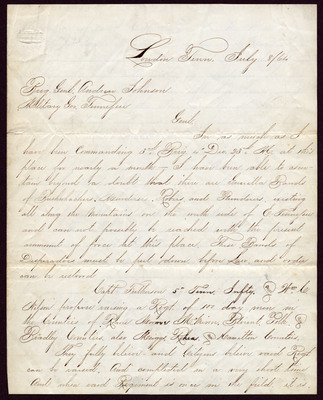 Loudon Tenn July 8/64
Brig Genl Andrew Johnson
Military Gov Tennessee
Genl.
In as much as I
have been Commanding 1st Brig 2 Div 23d AC at this
place for nearly a month & have been able to ascer
tain beyond a doubt that there are Guerilla Bands
of Bushwhackers, Murderers, Thieves and Plunderers, existing
all along the Mountains on the south side of E Tennessee
and can not possibly be reached with the present
amount of force at this place. These Bands of
Desperadoes must be put down before Law and order
can be restored
Capt Patterson 5th Tenn Infty &
Nelson propose raising a Regt. of 100 day men in
the Counties of Roane Monroe McMinn Blount Polk &
Bradley Counties, also Meigs, Rhea & Hamilton Counties.
They fully believe and Citizens believe said Regt
can be raised, and outfitted in a very short time
And when said Regiment is once in the field it is